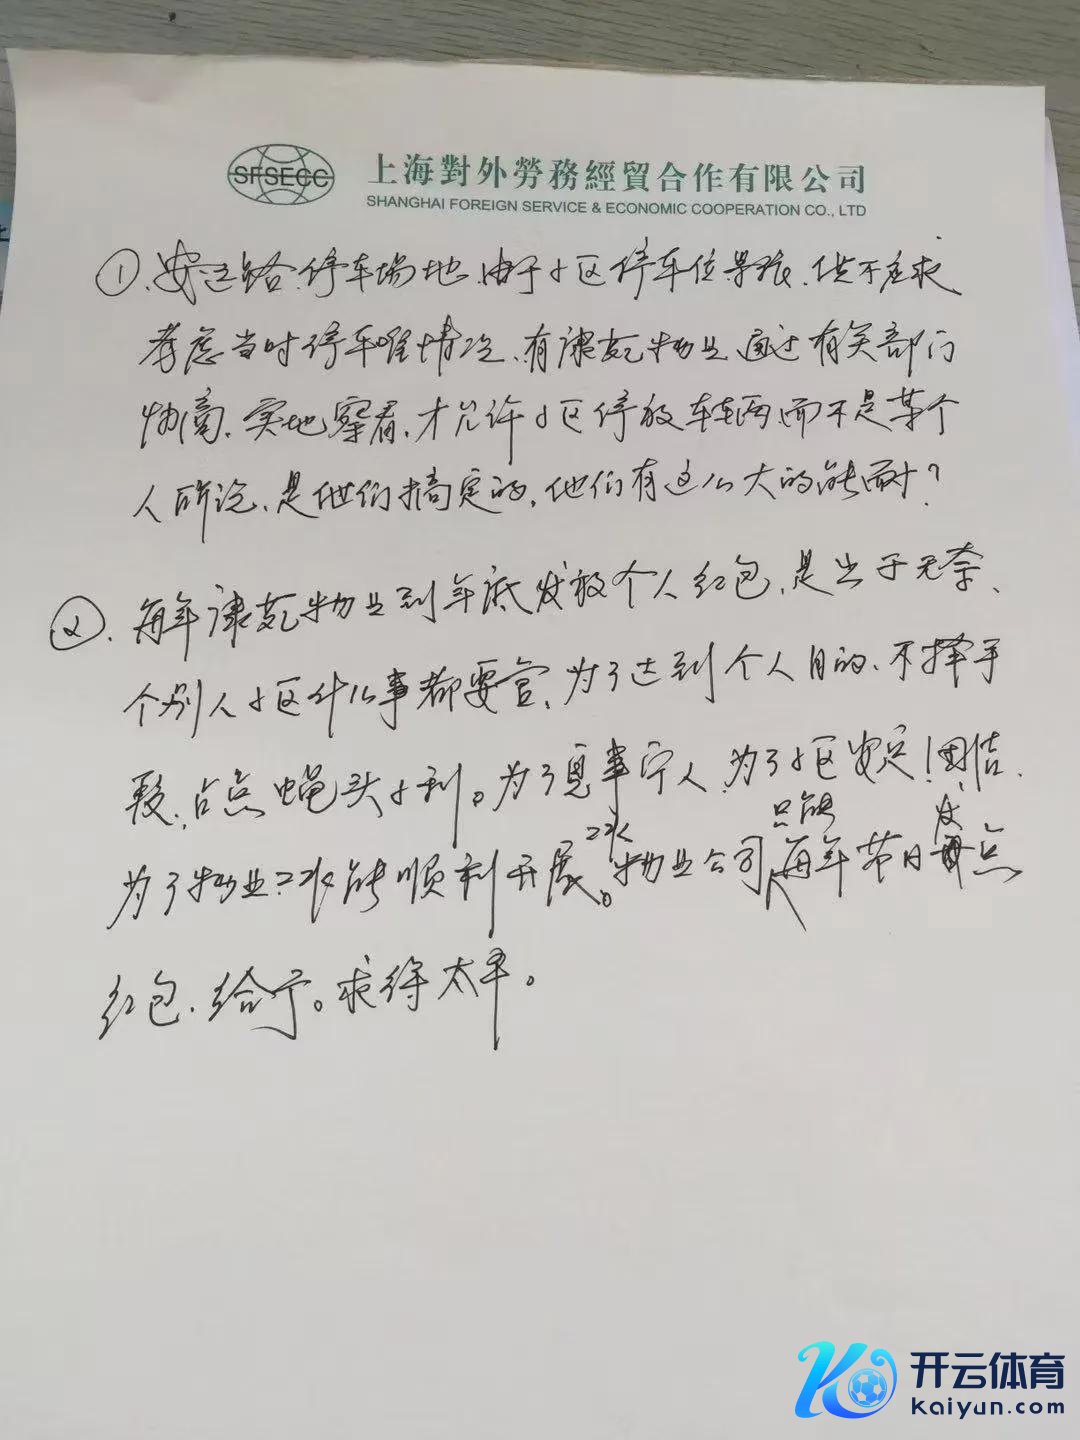 SFSECC
上海對外勞務經貿合作有限公司
SHANGHAI FOREIGN SERVICE & ECONOMIC COOPERATION CO., LTD
①、安远路停车场地、由于小区停车位紧张、供不应求
考虑当时停车难情况、有谏苑物业通过有关部门
协商、实地察看、才允许小区停放车辆、而不是某个
人所说、是他们搞定的、他们有这么大的能耐？
②、每年谏苑物业到年底发放个人红包、是出于无奈、
个别人小区什么事都要管、为了达到个人目的、不择手
段、占点蝇头小利。为了息事宁人、为了小区安定！团结、
为了物业工作能顺利开展。物业公司只能每年节日发点
红包、给予。求得太平。
开云体育
kaiyun.com